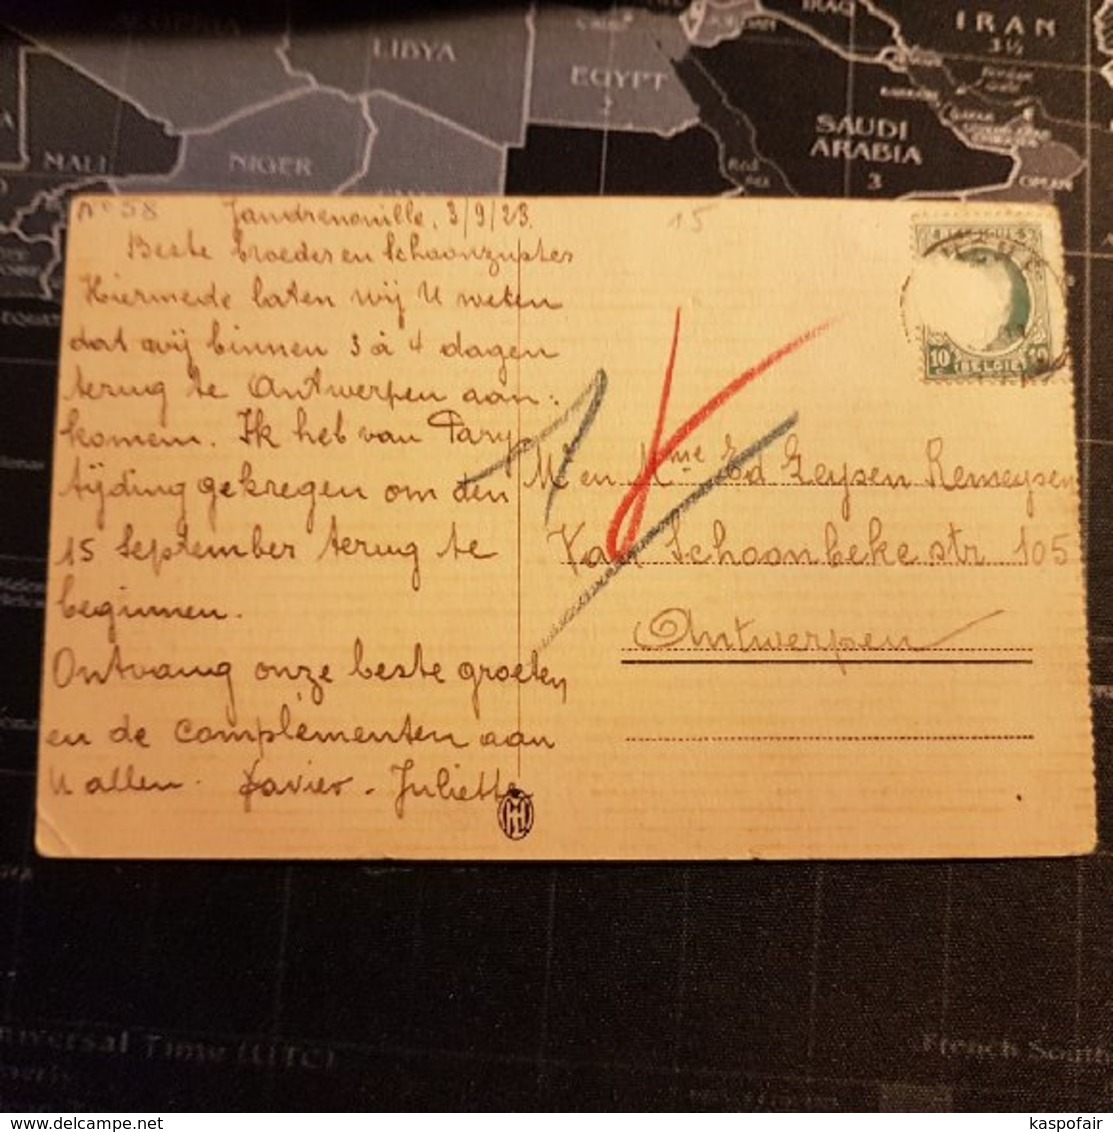 LIBYA
EGYPT
IRAQ
IRAN
3 ½
MALI
NIGER
SAUDI
ARABIA
3
OMAN
N° 58
Jandrenouille, 3/9/23.
15
Beste broeder en Schoonzuster
Hiermede laten wij U weten
dat wij binnen 3 à 4 dagen
terug te Antwerpen aan:
komen. Ik heb van Pary
tijding gekregen om den
15 September terug te
beginnen.
Ontvang onze beste groeten
en de complementen aan
U allen. Xavier - Juliette
Mr en Mme Ed Geysen Remeysen
Van Schoonbeke str 105
Antwerpen
10
(BELGIE)
Universal Time (UTC)
French South
kaspofair